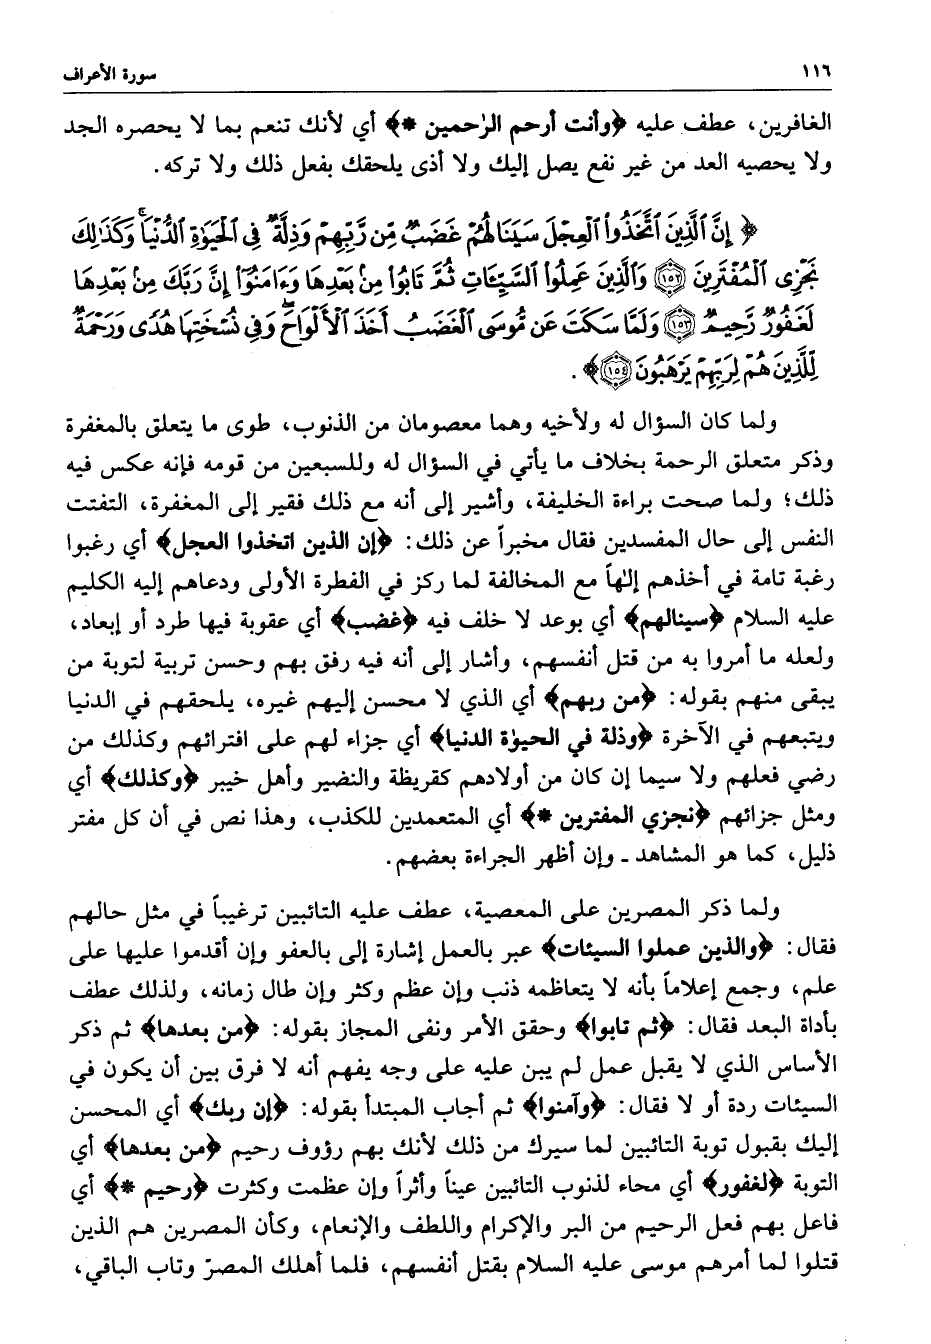 ١١٦ سورة الأعراف
الغافرين، عطف عليه ﴿وأنت أرحم الرٰحمين *﴾ أي لأنك تنعم بما لا يحصره الجد
ولا يحصيه العد من غير نفع يصل إليك ولا أذى يلحقك بفعل ذلك ولا تركه.
﴿ إِنَّ ٱلَّذِينَ ٱتَّخَذُوا۟ ٱلْعِجْلَ سَيَنَالُهُمْ غَضَبٌ مِّن رَّبِّهِمْ وَذِلَّةٌ فِى ٱلْحَيَوٰةِ ٱلدُّنْيَا ۚ وَكَذَٰلِكَ
نَجْزِى ٱلْمُفْتَرِينَ ﴿١٥٢﴾ وَٱلَّذِينَ عَمِلُوا۟ ٱلسَّيِّـَٔاتِ ثُمَّ تَابُوا۟ مِنۢ بَعْدِهَا وَءَامَنُوٓا۟ إِنَّ رَبَّكَ مِنۢ بَعْدِهَا
لَغَفُورٌ رَّحِيمٌ ﴿١٥٣﴾ وَلَمَّا سَكَتَ عَن مُّوسَى ٱلْغَضَبُ أَخَذَ ٱلْأَلْوَاحَ ۖ وَفِى نُسْخَتِهَا هُدًى وَرَحْمَةٌ
لِّلَّذِينَ هُمْ لِرَبِّهِمْ يَرْهَبُونَ ﴿١٥٤﴾﴾.
ولما كان السؤال له ولأخيه وهما معصومان من الذنوب، طوى ما يتعلق بالمغفرة
وذكر متعلق الرحمة بخلاف ما يأتي في السؤال له وللسبعين من قومه فإنه عكس فيه
ذلك؛ ولما صحت براءة الخليفة، وأشير إلى أنه مع ذلك فقير إلى المغفرة، التفتت
النفس إلى حال المفسدين فقال مخبراً عن ذلك: ﴿إن الذين اتخذوا العجل﴾ أي رغبوا
رغبة تامة في أخذهم إلٰهاً مع المخالفة لما ركز في الفطرة الأولى ودعاهم إليه الكليم
عليه السلام ﴿سينالهم﴾ أي بوعد لا خلف فيه ﴿غضب﴾ أي عقوبة فيها طرد أو إبعاد،
ولعله ما أمروا به من قتل أنفسهم، وأشار إلى أنه فيه رفق بهم وحسن تربية لتوبة من
يبقى منهم بقوله: ﴿من ربهم﴾ أي الذي لا محسن إليهم غيره، يلحقهم في الدنيا
ويتبعهم في الآخرة ﴿وذلة في الحيوٰة الدنيا﴾ أي جزاء لهم على افترائهم وكذلك من
رضي فعلهم ولا سيما إن كان من أولادهم كقريظة والنضير وأهل خيبر ﴿وكذلك﴾ أي
ومثل جزائهم ﴿نجزي المفترين *﴾ أي المتعمدين للكذب، وهذا نص في أن كل مفتر
ذليل، كما هو المشاهد ـ وإن أظهر الجراءة بعضهم.
ولما ذكر المصرين على المعصية، عطف عليه التائبين ترغيباً في مثل حالهم
فقال: ﴿والذين عملوا السيئات﴾ عبر بالعمل إشارة إلى بالعفو وإن أقدموا عليها على
علم، وجمع إعلاماً بأنه لا يتعاظمه ذنب وإن عظم وكثر وإن طال زمانه، ولذلك عطف
بأداة البعد فقال: ﴿ثم تابوا﴾ وحقق الأمر ونفى المجاز بقوله: ﴿من بعدها﴾ ثم ذكر
الأساس الذي لا يقبل عمل لم يبن عليه على وجه يفهم أنه لا فرق بين أن يكون في
السيئات ردة أو لا فقال: ﴿وآمنوا﴾ ثم أجاب المبتدأ بقوله: ﴿إن ربك﴾ أي المحسن
إليك بقبول توبة التائبين لما سيرك من ذلك لأنك بهم رؤوف رحيم ﴿من بعدها﴾ أي
التوبة ﴿لغفور﴾ أي محاء لذنوب التائبين عيناً وأثراً وإن عظمت وكثرت ﴿رحيم *﴾ أي
فاعل بهم فعل الرحيم من البر والإكرام واللطف والإنعام، وكأن المصرين هم الذين
قتلوا لما أمرهم موسى عليه السلام بقتل أنفسهم، فلما أهلك المصرّ وتاب الباقي،